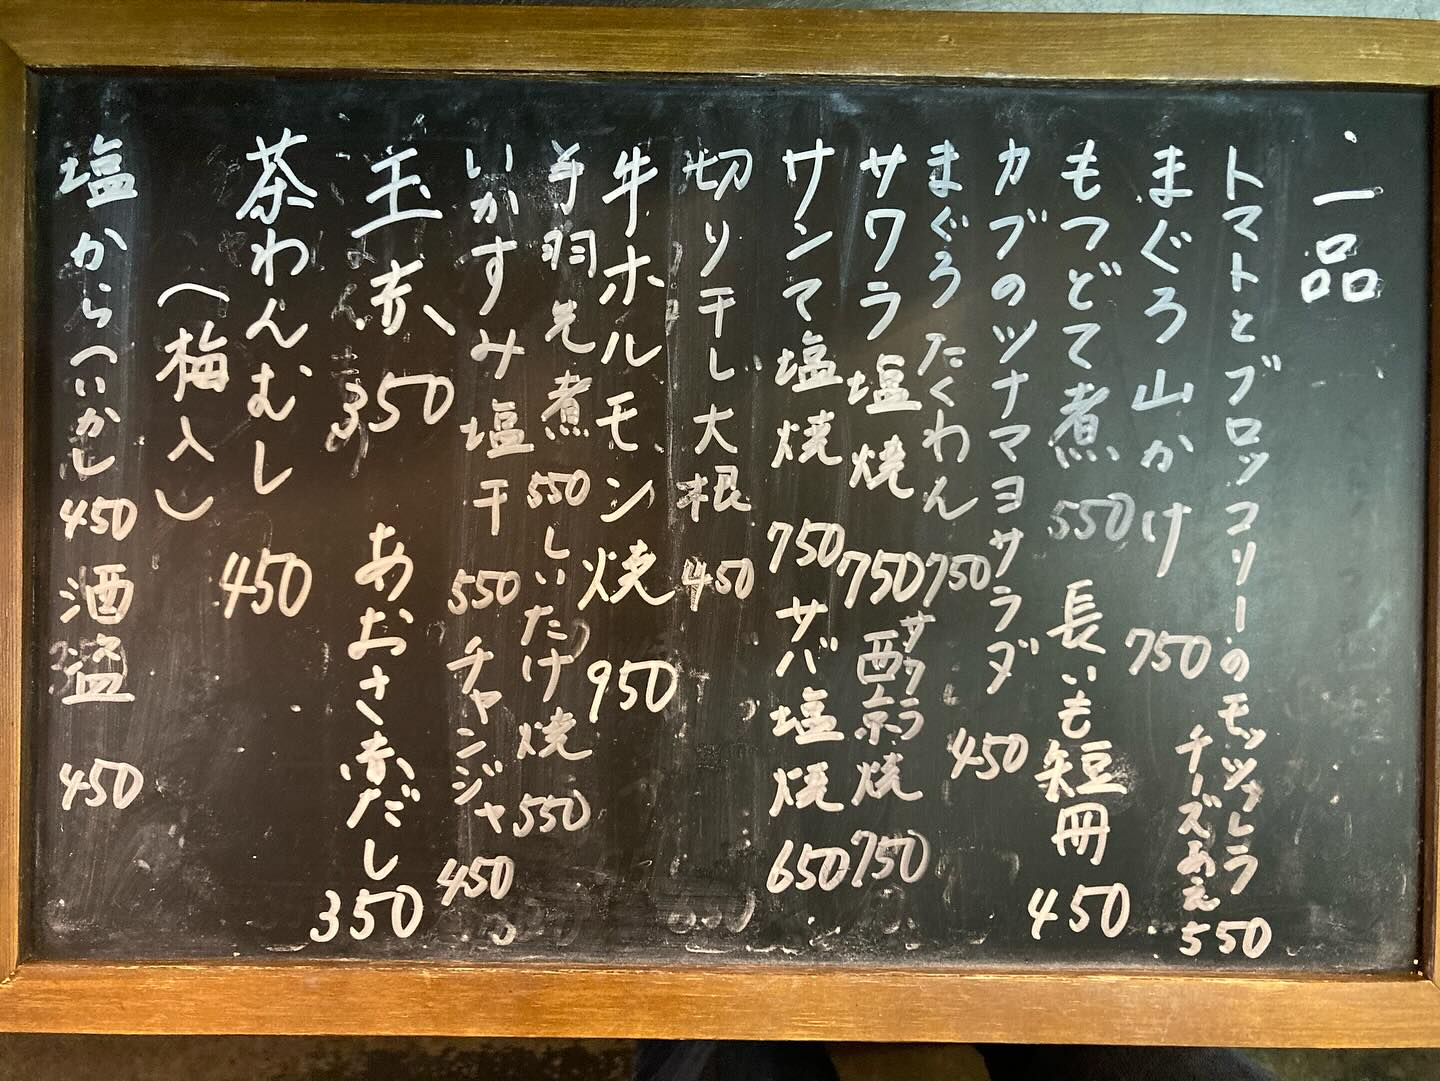 ・一品
トマトとブロッコリーのモッツァレラ
チーズあえ 550
まぐろ山かけ 750
もつどて煮 550 長いも短冊 450
カブのツナマヨサラダ 450
まぐろたくわん 750
サワラ塩焼 750 サワラ西京焼 750
サンマ塩焼 750 サバ塩焼 650
切り干し大根 450
牛ホルモン焼 950
手羽先煮 550 しいたけ焼 550
いかすみ塩干 550 チャンジャ 450
玉赤 350 あおさ赤だし 350
茶わんむし 450
(梅入り)
塩から(いかし 450 酒盗 450